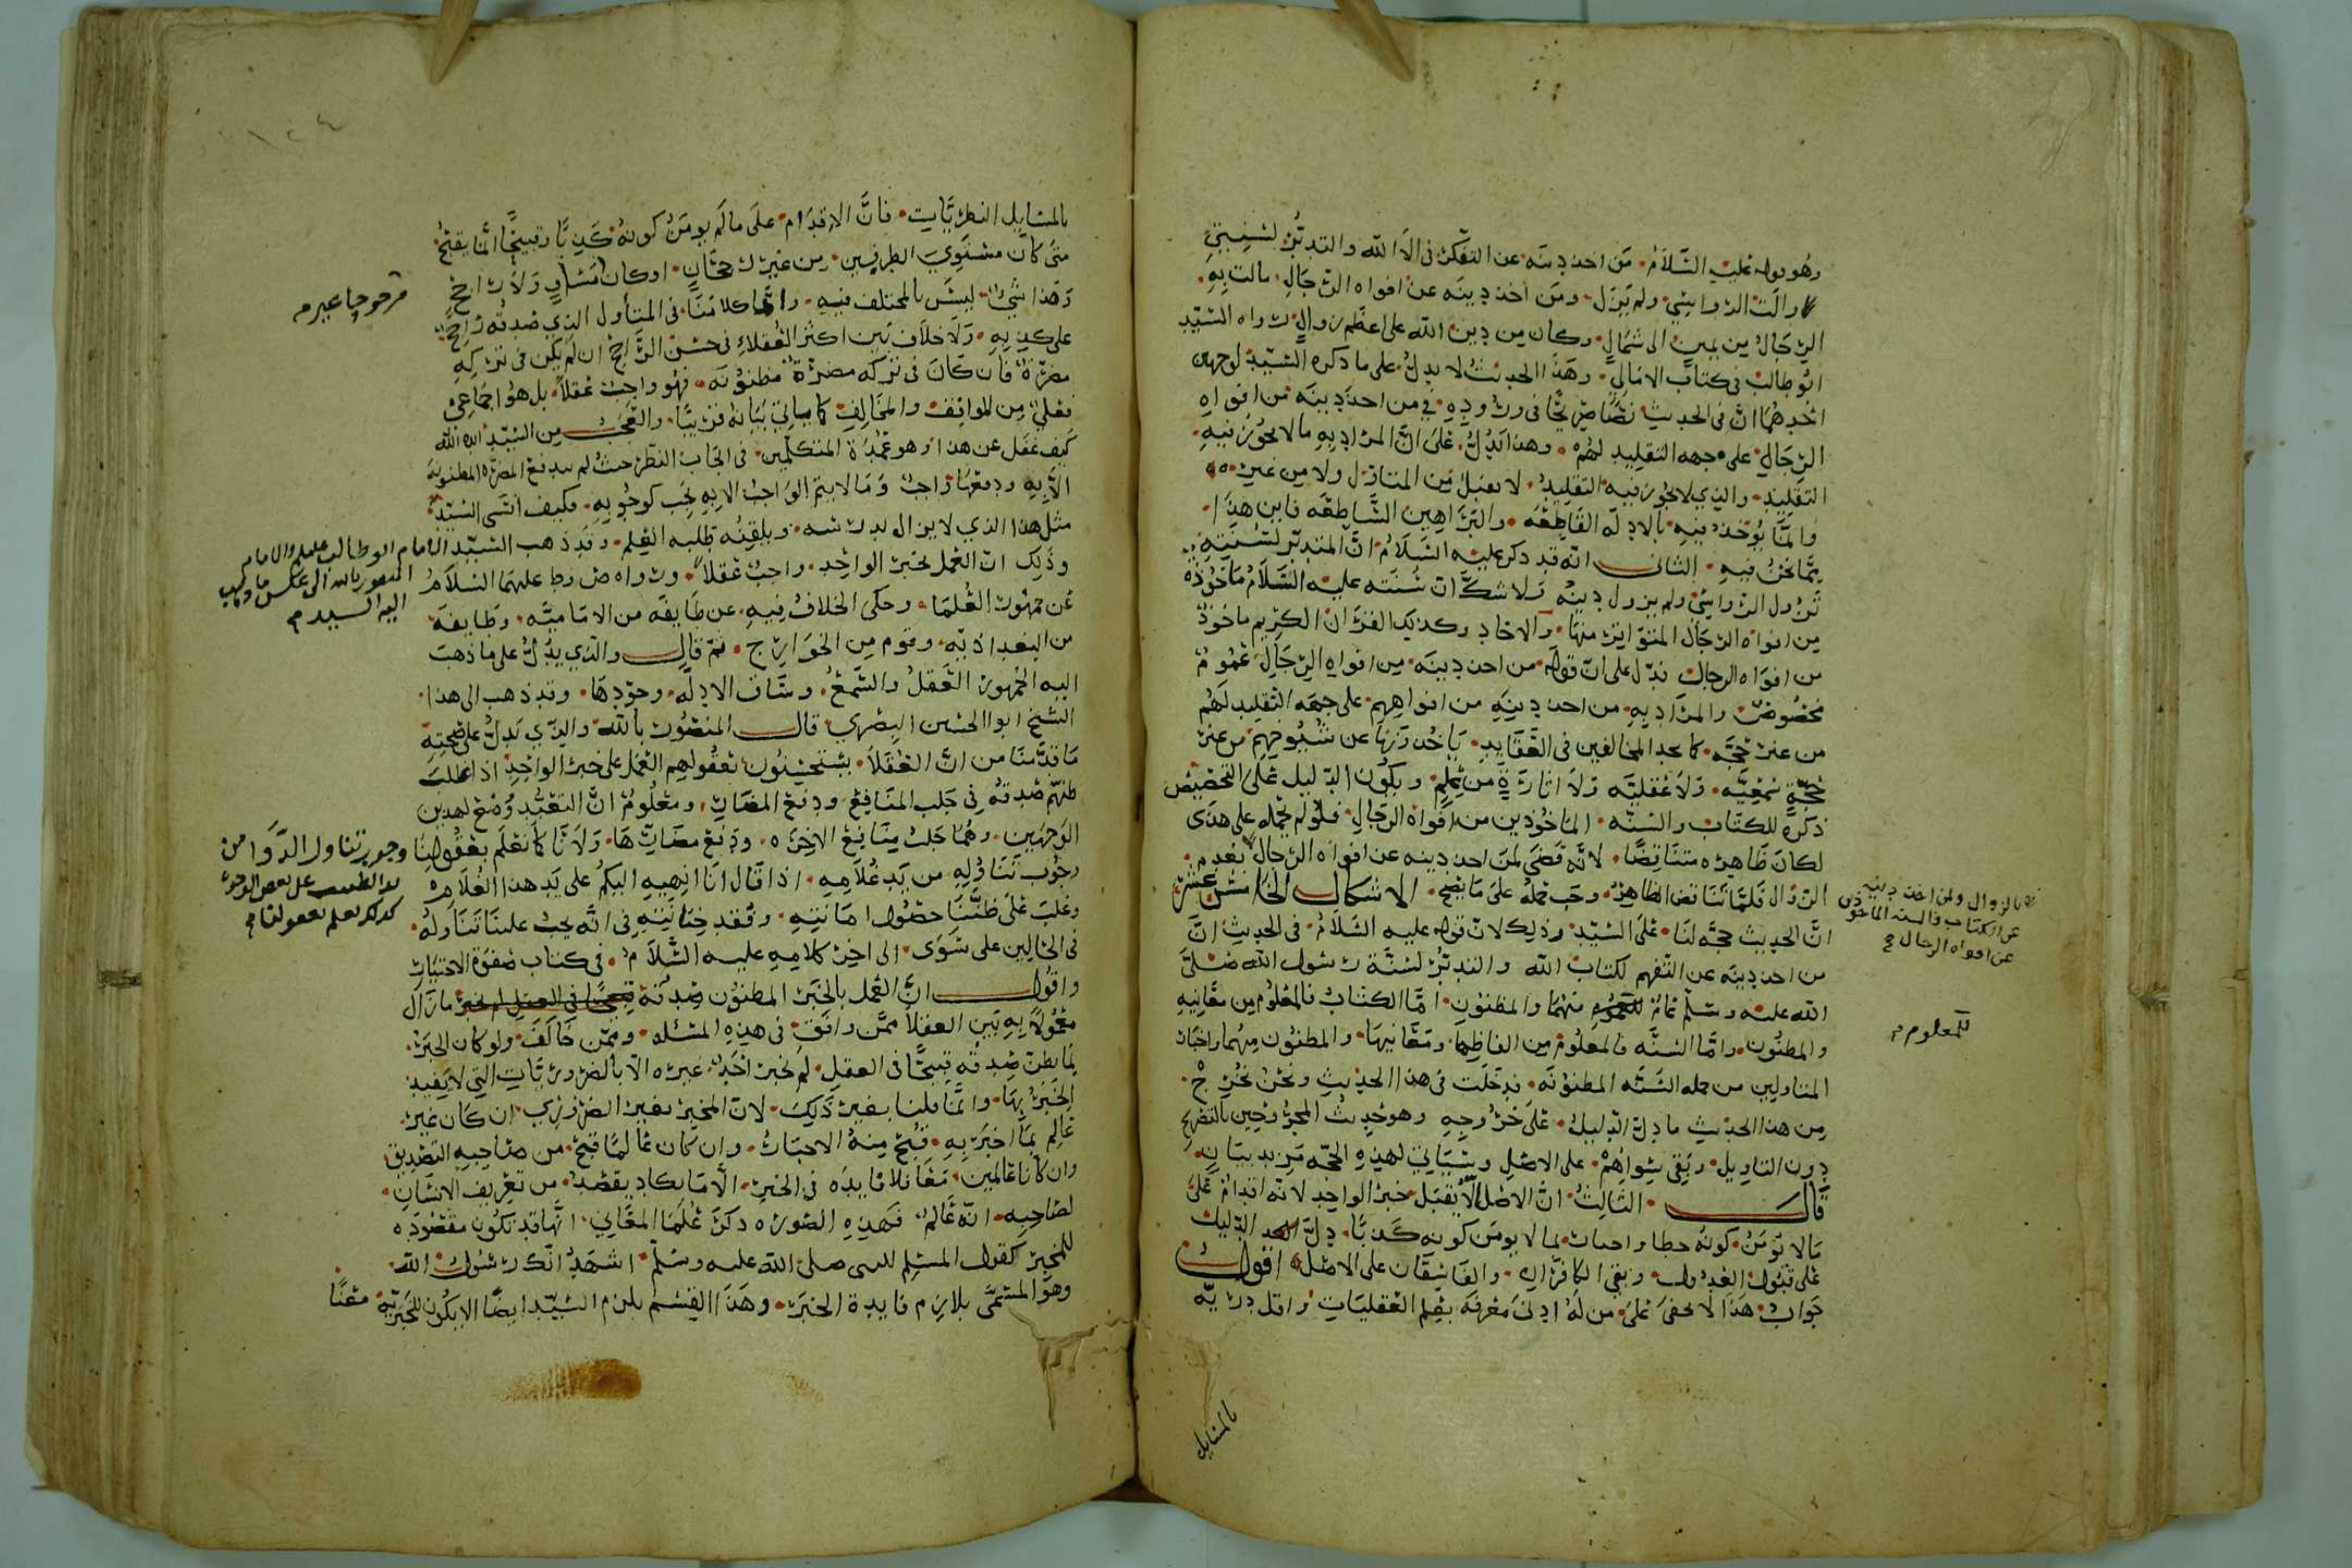 وهو قوله عليه السلام من اخذ دينه عن التفكر في الاء الله والتدبر لسنتي
زالت الرواسي ولم يزل ومن اخذ دينه عن افواه الرجال مالت به
الرجال من يمين الى شمال وكان من دين الله على اعظم زوال رواه السيد
ابو طالب في كتاب الامالي وهذا الحديث لا يدل على ما ذكره السيد لوجهين
احدهما ان في الحديث نصا صريحا في وروده في من اخذ دينه من افواه
الرجال على جهه التقليد لهم وهذا يدل على ان المراد به ما لا يجوز فيه
التقليد والذي لا يجوز فيه التقليد لا يقبل من المتاول ولا من غيره
وانما يؤخذ فيه بالادله القاطعه والبراهين الساطعه فاين هذا
مما نحن فيه الثاني انه قد ذكر عليه السلام ان المتدبر لسنته
تزول الرواسي ولم يزول دينه ولا شك ان سنته عليه السلام ماخوذه
من افواه الرجال المتواتر منها والاحاد وكذلك القران الكريم ماخوذ
من افواه الرجال فدل على ان قوله من اخذ دينه من افواه الرجال عموم
مخصوص والمراد به من اخذ دينه من افواههم على جهه التقليد لهم
من غير حجه كما نجد المخالفين في العقايد ياخذونها عن شيوخهم من غير
حجة سمعيه ولا عقليه ولا اثارة من علم ويكون الدليل على التخصيص
ذكره للكتاب والسنه الماخوذين من افواه الرجال فلو لم نحمله على هذى
لكان ظاهره متناقضا لانه قضى لمن اخذ دينه عن افواه الرجال بعدم
الزوال فلما تناقض الظاهر وجب حمله على ما يصح الاشكال الخامس عشر
بالزوال ولمن اخذ دينه
عن الكتاب والسنه الماخوذين
عن افواه الرجال
ان الحديث حجه لنا على السيد وذلك لان قوله عليه السلام في الحديث ان
من اخذ دينه عن التفهم لكتاب الله والتدبر لسنة رسول الله صلى
الله عليه وسلم عام منهما والمظنون اما الكتاب فالمعلوم من معانيه
للمعلوم
والمظنون واما السنه فالمعلوم من الفاظها ومعانيها والمظنون منهما واخبار
المتاولين من جمله السنه المظنونه فدخلت في هذا الحديث ونحن نخرج
من هذا الحديث ما دل الدليل على خروجه وهو حديث المجروحين بالتصريح
دون التاويل وبقي سواهم على الاصل وسياتي لهذه الحجه مزيد بيان
قال الثالث ان الاصل الا يقبل خبر الواحد لانه اقدام على
مالا نؤمن كونه خطا واخبار بما لا يومن كونه كذبا دل الدليل
على قبول العدول وبقي الكافر والفاسقان على الاصل اقول
جواب هذا لا يخفى على من له ادنى معرفه بعلم العقليات واقل دريه
بالمسايل
بالمسايل النظريات فان الاقدام على ما لم يومن كونه كذبا وقبيحا انما يقبح
متى كان مستوي الطرفين من غير رجحان او كان مساو ولا راجح
مرجوحا غيرم
وهذا شيئ ليس بالمختلف فيه وانما كلامنا في المتأول الذي صدقه راجح
على كذبه ولا خلاف بين اكثر العقلاء في حسن الراجح ان لم يكن في تركه
مضرة فان كان في تركه مضرة مظنونه فهو واجب عقلا بل هو اجماعي
فعلي من الموالف والمخالف كما سياتي بيانه قريبا والعجب من السيد ايده الله
كيف غفل عن هذا وهو عمدة المتكلمين في ايجاب النظر حيث لم يندفع المضره المظنونه
الا به ودفعها واجب وما لا يتم الواجب الا به يجب كوجوبه فكيف انسى السيد
مثل هذا الذي لا يزال يدرسه ويلقنه طلبه العلم وقد ذهب السيد الامام ابو طالب والامام
المنصور بالله الى عكس ما ذهب
اليه السيد
وذلك ان العمل بخبر الواحد واجب عقلا ورواه ص وط عليهما السلام
عن جمهور العلما وحكى الخلاف فيه عن طايفه من الاماميه وطايفه
من البغداذيه وقوم من الخوارج ثم قال والذي يدل على ما ذهب
اليه الجمهور العقل والسمع وساق الادله وجودها وقد ذهب الى هذا
الشيخ ابوا الحسين البصري قال المنصور بالله والذي يدل على صحته
ما قدمنا من ان العقلا يستحسنون بعقولهم العمل على خبر الواحد اذا غلب
ظنهم صدقه في جلب المنافع ودفع المضار ومعلوم ان التعبد وضع لهذين
الوجهين وهما جلب منافع الاخره ودفع مضارها ولانا كما نعلم بعقولنا وجوب تناول الدوا من
يد الطبيب على بعض الوجوه
كذلك نعلم بعقولنا
وجوب تناوله من يد غلامه اذا قال انا انهيه اليكم على يد هذا الغلام
وغلب على ظننا حصول امانته وفقد خيانته في انه يجب علينا تناوله
في الحالين على سوى الى اخر كلامه عليه السلام في كتاب صفوة الاختيار
واقول ان العمل بالخبر المظنون صدقه مازال
معمولا به بين العقلا ممن وافق في هذه المسئله وممن خالف ولو كان الخبر
بما يظن صدقه قبيحا في العقل لم يخبر احد غيره الا بالضروريات التي لا يفيد
الخبر بها وانما قلنا بغير ذلك لان المخبر بغير الضروري ان كان غير
عالم بما اخبر به قبح منه الاخبار وان كان عالما قبح من صاحبه التصديق
وان كانا عالمين معا فلا فايده في الخبر الا ما يكاد يقصد من تعريف الانسان
لصاحبه انه عالم فهذه الصوره ذكر علما المعاني انها قد تكون مقصوده
للمخبر كقول المسلم للنبي صلى الله عليه وسلم اشهد انك رسول الله
وهو المسمى بلازم فايدة الخبر وهذا القسم يلزم السيد ايضا الا يكون للخبر به معنا